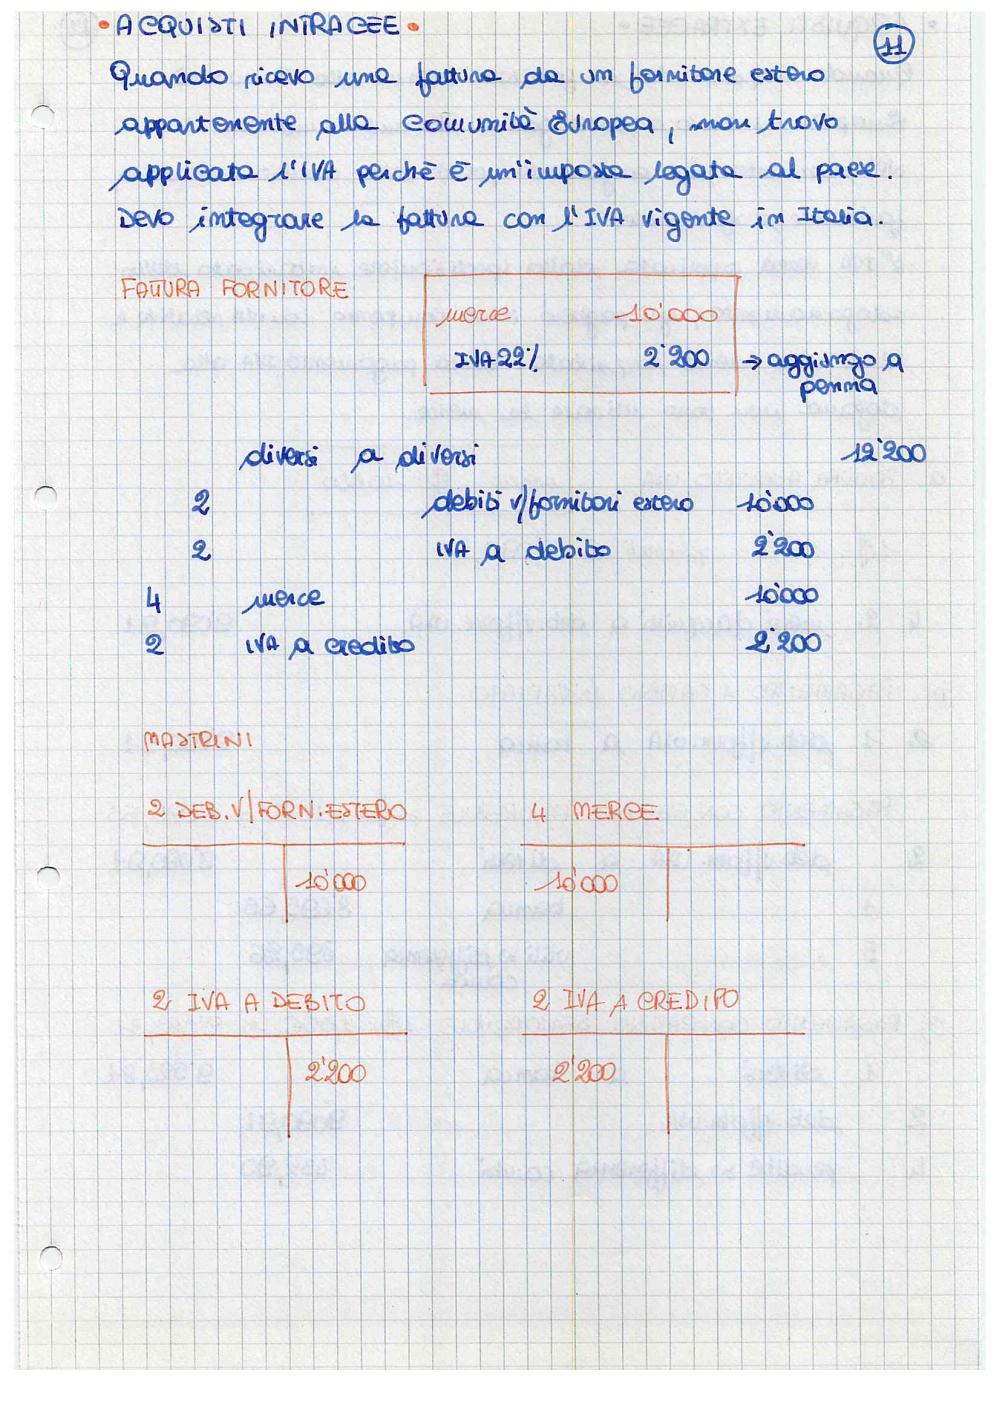 • ACQUISTI INTRACEE •
11
Quando ricevo una fattura da un fornitore estero
appartenente alla Comunità Europea, non trovo
applicata l'IVA perchè è un'imposta legata al paese.
Devo integrare la fattura con l'IVA vigente in Italia.
FATTURA FORNITORE
merce 10'000
IVA 22% 2'200 → aggiungo a
penna
diversi a diversi 12'200
2 debiti v/fornitori estero 10'000
2 IVA a debito 2'200
4 merce 10'000
2 IVA a credito 2'200
MASTRINI
2 DEB. V/FORN. ESTERO 4 MERCE
10'000 10'000
2 IVA A DEBITO 2 IVA A CREDITO
2'200 2'200